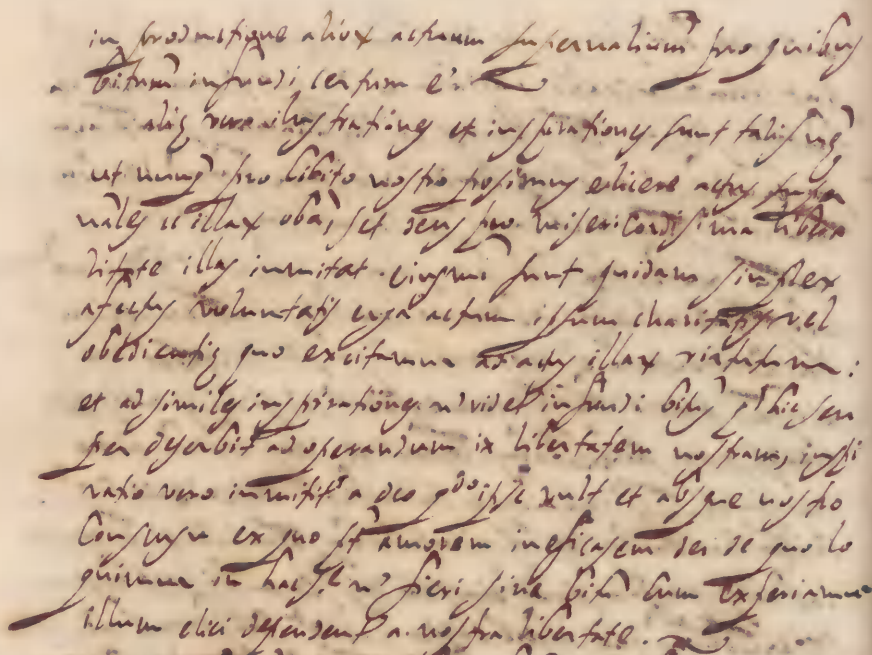 in productione aliorx actuum supernalium̃ pro quibus
bitum̃ infundi certum e.
aliq vero illustrationes et inspirationes sunt tales
ut nunq̃ pro libito nostro possimus elicere actus super
nales illax oba, set deus pro misericordisima libera
litate illas inmitat. eiusmi sunt quidam simplex
afectus voluntatis erga actum ipsum charitatis vel
obedientiq quo excitamur ad actus illax virtutum:
et ad similes inspirationes n̄ videt infundi bitus qd hic sen
per deserbit ad operandum ix libertatem nostram, inspi
ratio vero inmitit a deo qdo ipse vult et absque nostro
Consensu ex quo fit amorem ineficasem dei de quo lo
quimur in hac n̄ fieri sine bitu cum experiamur
illum elici dependent a nostra libertate.